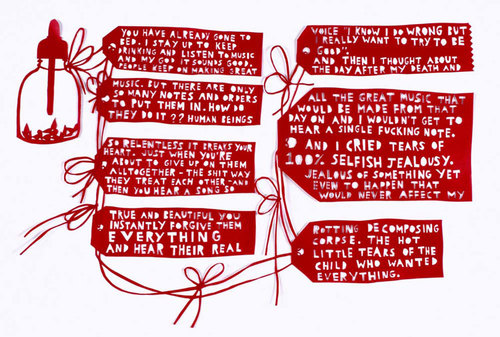 YOU HAVE ALREADY GONE TO
BED. I STAY UP TO KEEP
DRINKING AND LISTEN TO MUSIC
AND MY GOD IT SOUNDS GOOD.
PEOPLE KEEP ON MAKING GREAT
MUSIC. BUT THERE ARE ONLY
SO MANY NOTES AND ORDERS
TO PUT THEM IN. HOW DO
THEY DO IT?? HUMAN BEINGS
SO RELENTLESS IT BREAKS YOUR
HEART. JUST WHEN YOU'RE
ABOUT TO GIVE UP ON THEM
ALLTOGETHER - THE SHIT WAY
THEY TREAT EACH OTHER - AND
THEN YOU HEAR A SONG SO
TRUE AND BEAUTIFUL YOU
INSTANTLY FORGIVE THEM
EVERYTHING
AND HEAR THEIR REAL
VOICE "I KNOW I DO WRONG BUT
I REALLY WANT TO TRY TO BE
GOOD".
AND THEN I THOUGHT ABOUT
THE DAY AFTER MY DEATH AND
ALL THE GREAT MUSIC THAT
WOULD BE MADE FROM THAT
DAY ON AND I WOULDN'T GET TO
HEAR A SINGLE FUCKING NOTE.
AND I CRIED TEARS OF
100% SELFISH JEALOUSY.
JEALOUS OF SOMETHING YET
EVEN TO HAPPEN THAT
WOULD NEVER AFFECT MY
ROTTING DECOMPOSING
CORPSE. THE HOT
LITTLE TEARS OF THE
CHILD WHO WANTED
EVERYTHING.